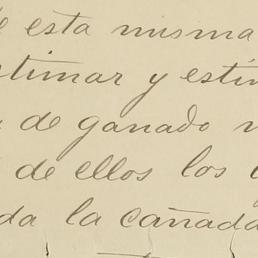 e esta misma
timar y estin
de ganado
de ellos los
da la cañada